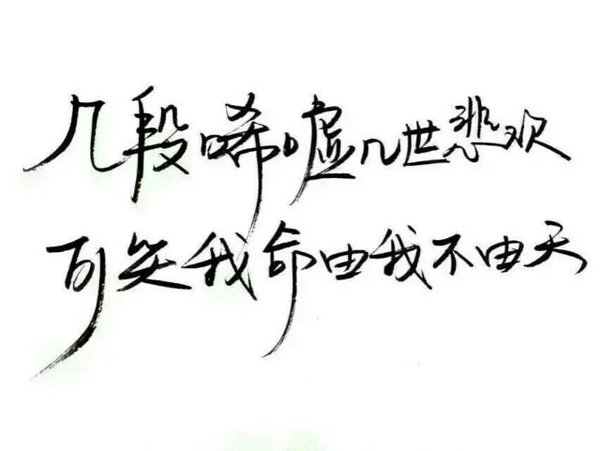 几段唏嘘几世悲欢
可笑我命由我不由天